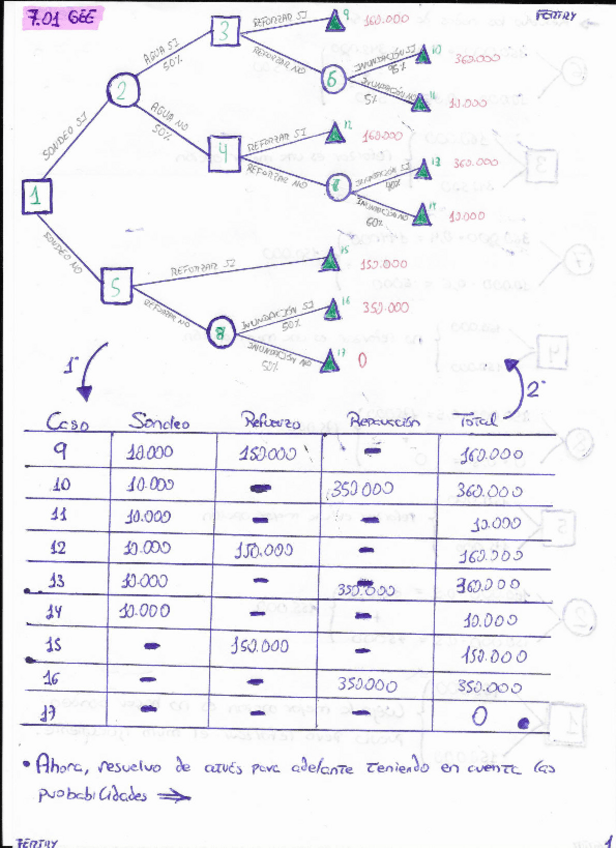 7.01 GEE
FERTRY
1
SONDEO SI
SONDEO NO
2
AGUA SI
50%
AGUA NO
50%
3
REFORZAR SI
9
160.000
REFORZAR NO
6
INUNDACIÓN SI
95%
10
360.000
INUNDACIÓN NO
5%
11
10.000
4
REFORZAR SI
12
160.000
REFORZAR NO
7
INUNDACIÓN SI
40%
13
360.000
INUNDACIÓN NO
60%
14
10.000
5
REFORZAR SI
15
150.000
REFORZAR NO
8
INUNDACIÓN SI
50%
16
350.000
INUNDACIÓN NO
50%
17
0
1º
2º
Caso Sondeo Refuerzo Reparación Total
9 10.000 150.000 - 160.000
10 10.000 - 350000 360.000
11 10.000 - - 10.000
12 10.000 150.000 - 160.000
13 10.000 - 350.000 360.000
14 10.000 - - 10.000
15 - 150.000 - 150.000
16 - - 350000 350.000
17 - - - 0
• Ahora, resuelvo de atrás para adelante teniendo en cuenta las
probabilidades →
FERTRY
1